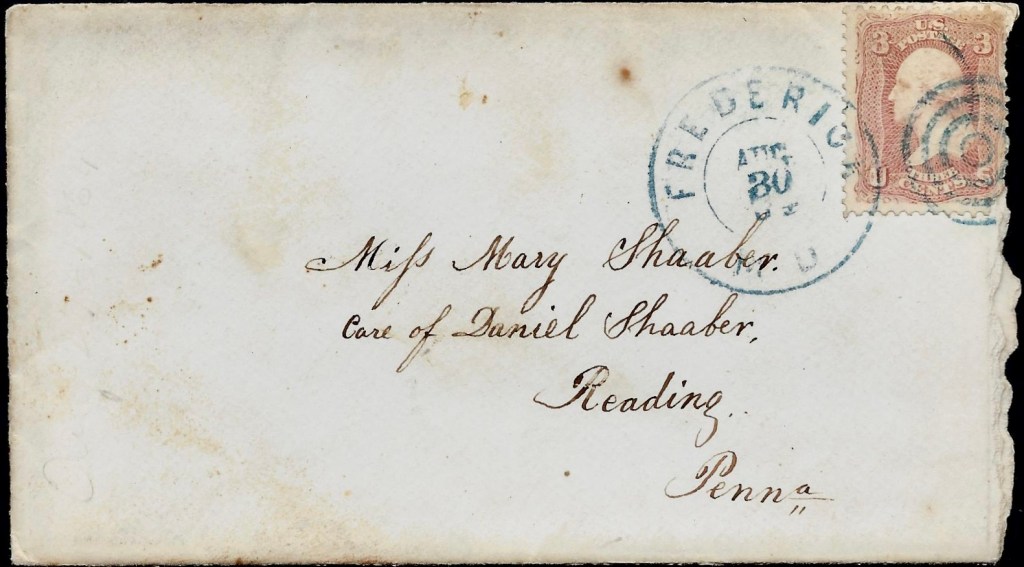 3 U.S. 3
POST
FREDERICK
AUG
30
MD
U S
CENTS
Miss Mary Shaaber.
Care of Daniel Shaaber,
Reading.
Penna